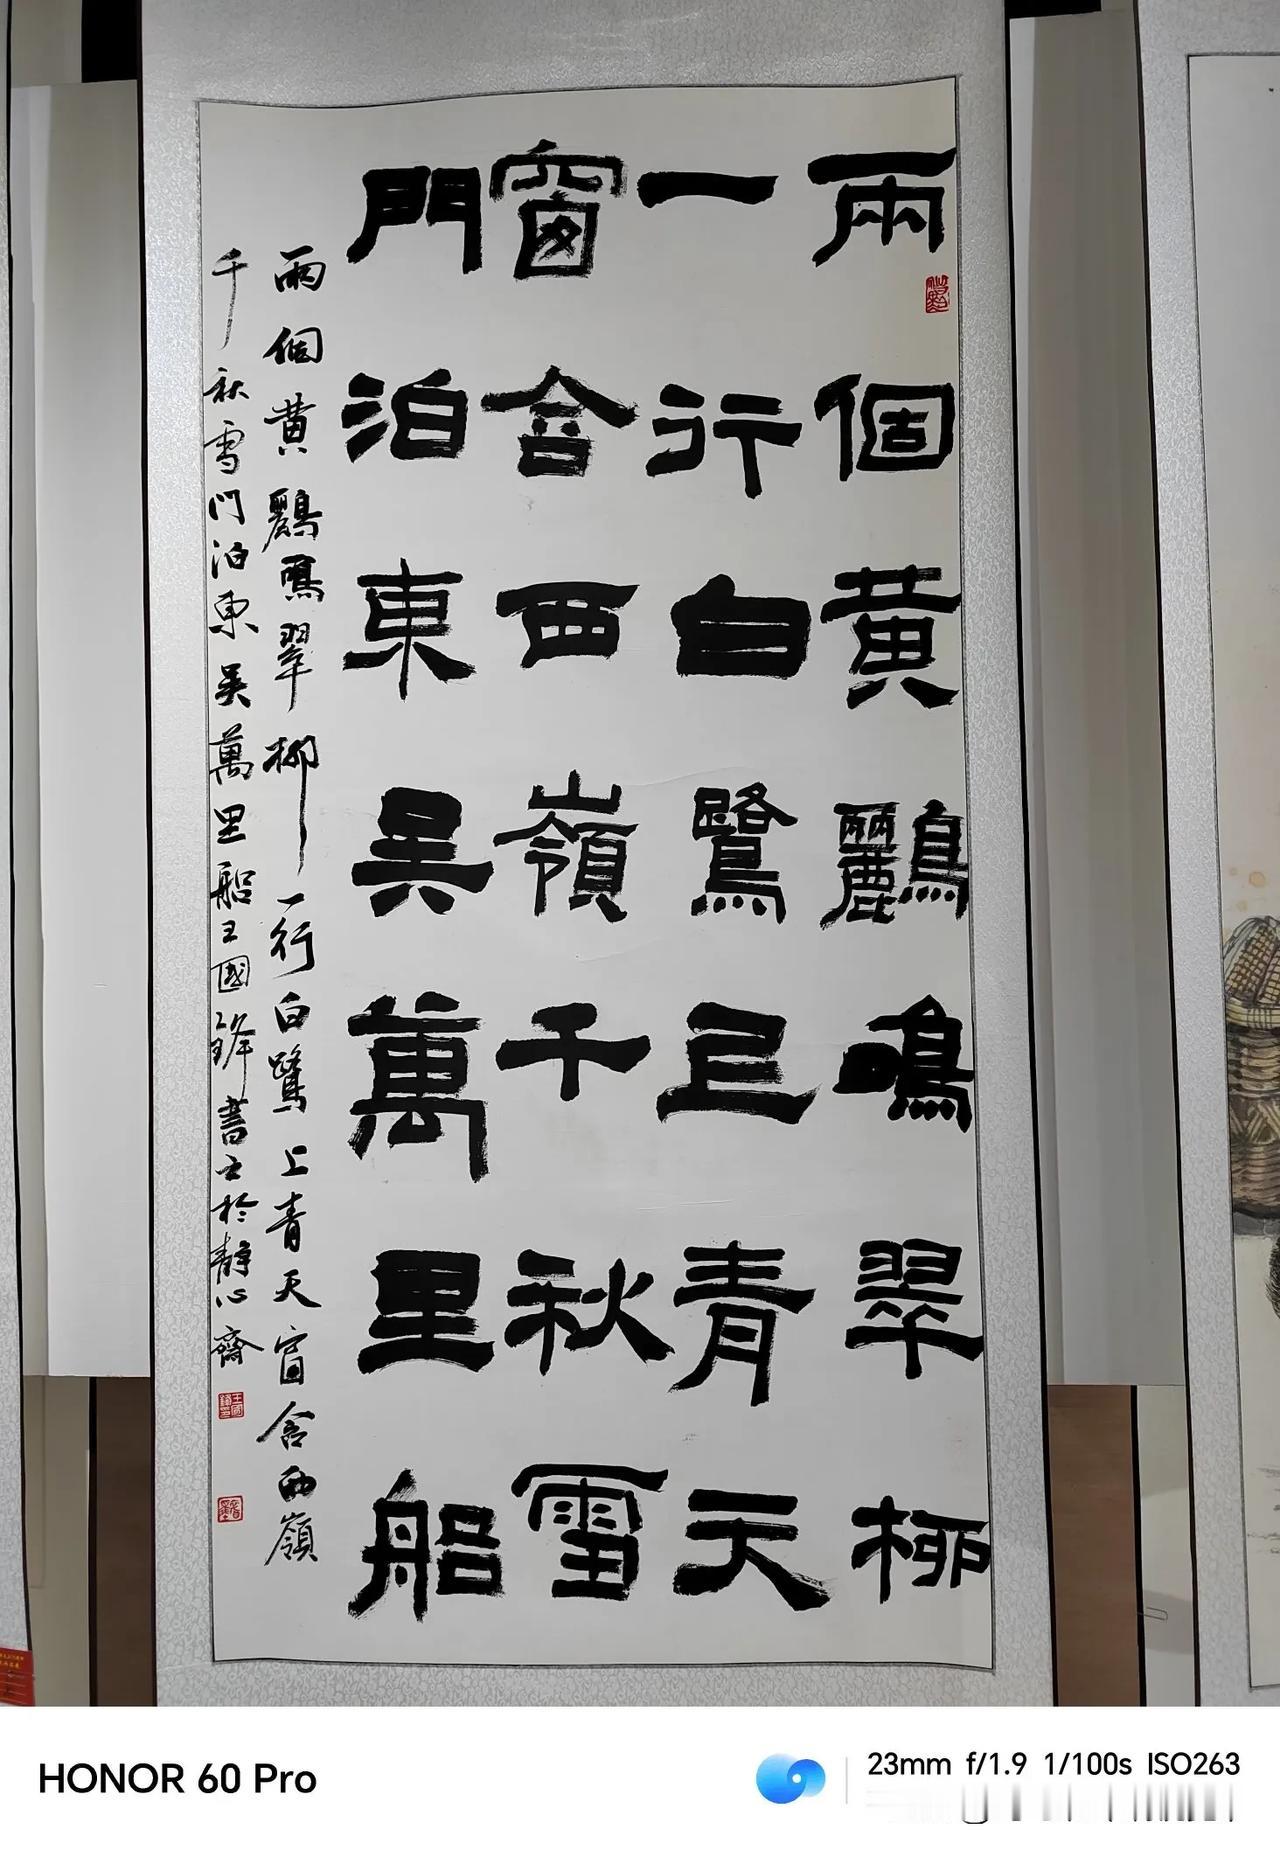 兩個黄鸝鳴翠柳
一行白鷺上青天
窗含西嶺千秋雪
門泊東吳萬里船
兩個黄鸝鳴翠柳一行白鷺上青天窗含西嶺
千秋雪門泊東吳萬里船王國鋒書之於靜心齋
HONOR 60 Pro
23mm f/1.9 1/100s ISO263